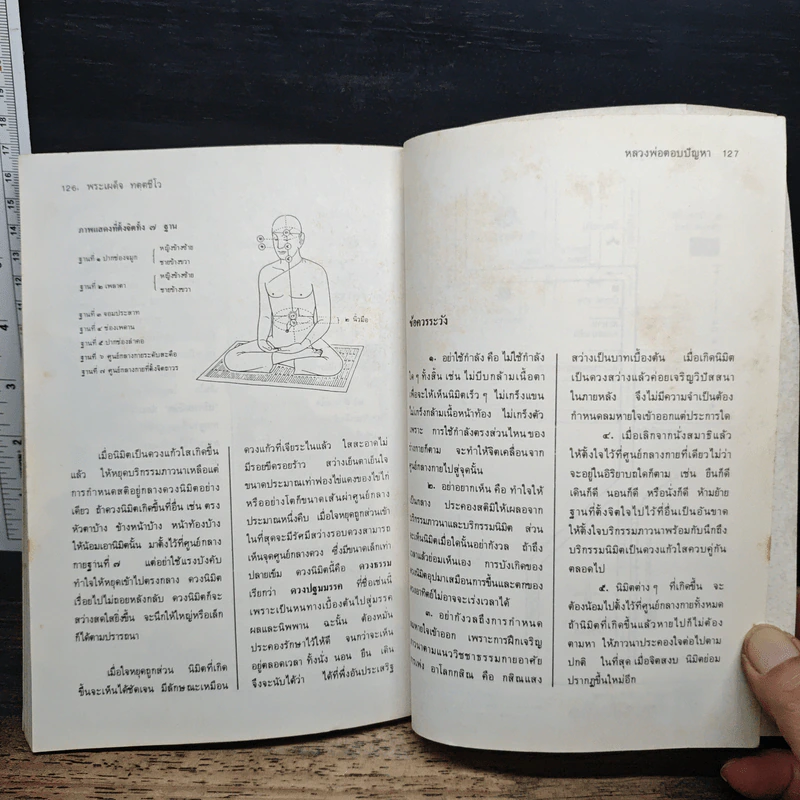 126. พระเผด็จ ทตฺตชีโว
ภาพแสดงที่ตั้งจิตทั้ง ๗ ฐาน
ฐานที่ ๑ ปากช่องจมูก
หญิงข้างซ้าย
ชายข้างขวา
ฐานที่ ๒ เพลาตา
หญิงข้างซ้าย
ชายข้างขวา
ฐานที่ ๓ จอมประสาท
ฐานที่ ๔ ช่องเพดาน
ฐานที่ ๕ ปากช่องลำคอ
ฐานที่ ๖ ศูนย์กลางกายระดับสะดือ
ฐานที่ ๗ ศูนย์กลางกายที่ตั้งจิตถาวร
๒ นิ้วมือ
เมื่อนิมิตเป็นดวงแก้วใสเกิดขึ้น
แล้ว ให้หยุดบริกรรมภาวนาเหลือแต่
การกำหนดสติอยู่กลางดวงนิมิตอย่าง
เดียว ถ้าดวงนิมิตเกิดขึ้นที่อื่น เช่น ตรง
หัวตาบ้าง ข้างหน้าบ้าง หน้าท้องบ้าง
ให้น้อมเอานิมิตนั้น มาตั้งไว้ที่ศูนย์กลาง
กายฐานที่ ๗ แต่อย่าใช้แรงบังคับ
ทำใจให้หยุดเข้าไปตรงกลาง ดวงนิมิต
เรื่อยไปไม่ถอยหลังกลับ ดวงนิมิตก็จะ
สว่างสดใสยิ่งขึ้น จะนึกให้ใหญ่หรือเล็ก
ก็ได้ตามปรารถนา
เมื่อใจหยุดถูกส่วน นิมิตที่เกิด
ขึ้นจะเห็นได้ชัดเจน มีลักษณะเหมือน
ดวงแก้วที่เจียระไนแล้ว ใสสะอาดไม่
มีรอยขีดรอยร้าว สว่างเย็นตาเย็นใจ
ขนาดประมาณเท่าฟองไข่แดงของไข่ไก่
หรืออย่างโตก็ขนาดเส้นผ่าศูนย์กลาง
ประมาณหนึ่งคืบ เมื่อใจหยุดถูกส่วนเข้า
ในที่สุดจะมีรัศมีสว่างรอบดวงสามารถ
เห็นจุดศูนย์กลางดวง ซึ่งมีขนาดเล็กเท่า
ปลายเข็ม ดวงนิมิตนี้คือ ดวงธรรม
เรียกว่า ดวงปฐมมรรค ที่ชื่อเช่นนี้
เพราะเป็นหนทางเบื้องต้นไปสู่มรรค
ผลและนิพพาน ฉะนั้น ต้องหมั่น
ประคองรักษาไว้ให้ดี จนกว่าจะเห็น
อยู่ตลอดเวลา ทั้งนั่ง นอน ยืน เดิน
จึงจะนับได้ว่า ได้ที่พึ่งอันประเสริฐ
หลวงพ่อตอบปัญหา 127
ข้อควรระวัง
๑. อย่าใช้กำลัง คือ ไม่ใช้กำลัง
ใด ๆ ทั้งสิ้น เช่น ไม่บีบกล้ามเนื้อตา
เพื่อจะให้เห็นนิมิตเร็ว ๆ ไม่เกร็งแขน
ไม่เกร็งกล้ามเนื้อหน้าท้อง ไม่เกร็งตัว
เพราะ การใช้กำลังตรงส่วนไหนของ
ร่างกายก็ตาม จะทำให้จิตเคลื่อนจาก
ศูนย์กลางกายไปสู่จุดนั้น
๒. อย่าอยากเห็น คือ ทำใจให้
เป็นกลาง ประคองสติมิให้เผลอจาก
บริกรรมภาวนาและบริกรรมนิมิต ส่วน
จะเห็นนิมิตเมื่อใดนั้นอย่ากังวล ถ้าถึง
เวลาแล้วย่อมเห็นเอง การบังเกิดของ
ดวงนิมิตอุปมาเสมือนการขึ้นและตกของ
ดวงอาทิตย์ไม่อาจจะเร่งเวลาได้
๓. อย่ากังวลถึงการกำหนด
ลมหายใจเข้าออก เพราะการฝึกเจริญ
ภาวนาตามแนววิชชาธรรมกายอาศัย
เพ่ง อาโลกกสิณ คือ กสิณแสง
สว่างเป็นบาทเบื้องต้น เมื่อเกิดนิมิต
เป็นดวงสว่างแล้วค่อยเจริญวิปัสสนา
ในภายหลัง จึงไม่มีความจำเป็นต้อง
กำหนดลมหายใจเข้าออกแต่ประการใด
๔. เมื่อเลิกจากนั่งสมาธิแล้ว
ให้ตั้งใจไว้ที่ศูนย์กลางกายที่เดียวไม่ว่า
จะอยู่ในอิริยาบถใดก็ตาม เช่น ยืนก็ดี
เดินก็ดี นอนก็ดี หรือนั่งก็ดี ห้ามย้าย
ฐานที่ตั้งจิตไปไว้ที่อื่นเป็นอันขาด
ให้ตั้งใจบริกรรมภาวนาพร้อมกับนึกถึง
บริกรรมนิมิตเป็นดวงแก้วใสควบคู่กัน
ตลอดไป
๕. นิมิตต่าง ๆ ที่เกิดขึ้น จะ
ต้องน้อมไปตั้งไว้ที่ศูนย์กลางกายทั้งหมด
ถ้านิมิตที่เกิดขึ้นแล้วหายไปก็ไม่ต้อง
ตามหา ให้ภาวนาประคองใจต่อไปตาม
ปกติ ในที่สุด เมื่อจิตสงบ นิมิตย่อม
ปรากฏขึ้นใหม่อีก